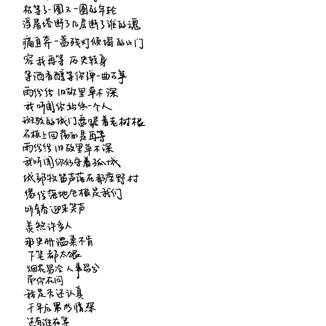 枯等了一圈又一圈的年轮
浮屠塔断了几层断了谁的魂
痛直奔一盏残灯倾塌的山门
容我再等 历史转身
等酒香醇等你弹一曲古筝
雨纷纷 旧故里草木深
我听闻 你始终一个人
斑驳的城门 盘踞着老树根
石板上回荡的是再等
雨纷纷 旧故里草木深
我听闻 你仍守着孤城
城郊牧笛声 落在那座野村
缘份落地生根是我们
听青春 迎来笑声
羡煞许多人
那史册 温柔不肯
下笔都太狠
烟花易冷 人事易分
而你在问
我是否还认真
千年后 累世情深
还有谁在等